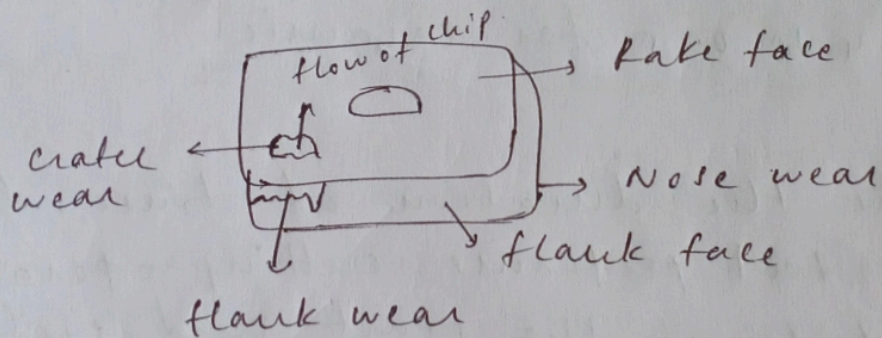 flow of chip
Rake face
crater
wear
Nose wear
flank face
flank wear